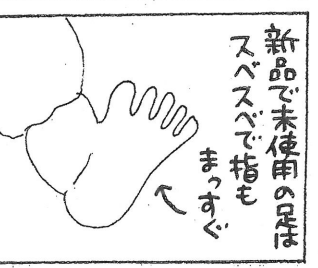 新品で未使用の足は
スベスベで指も
まっすぐ